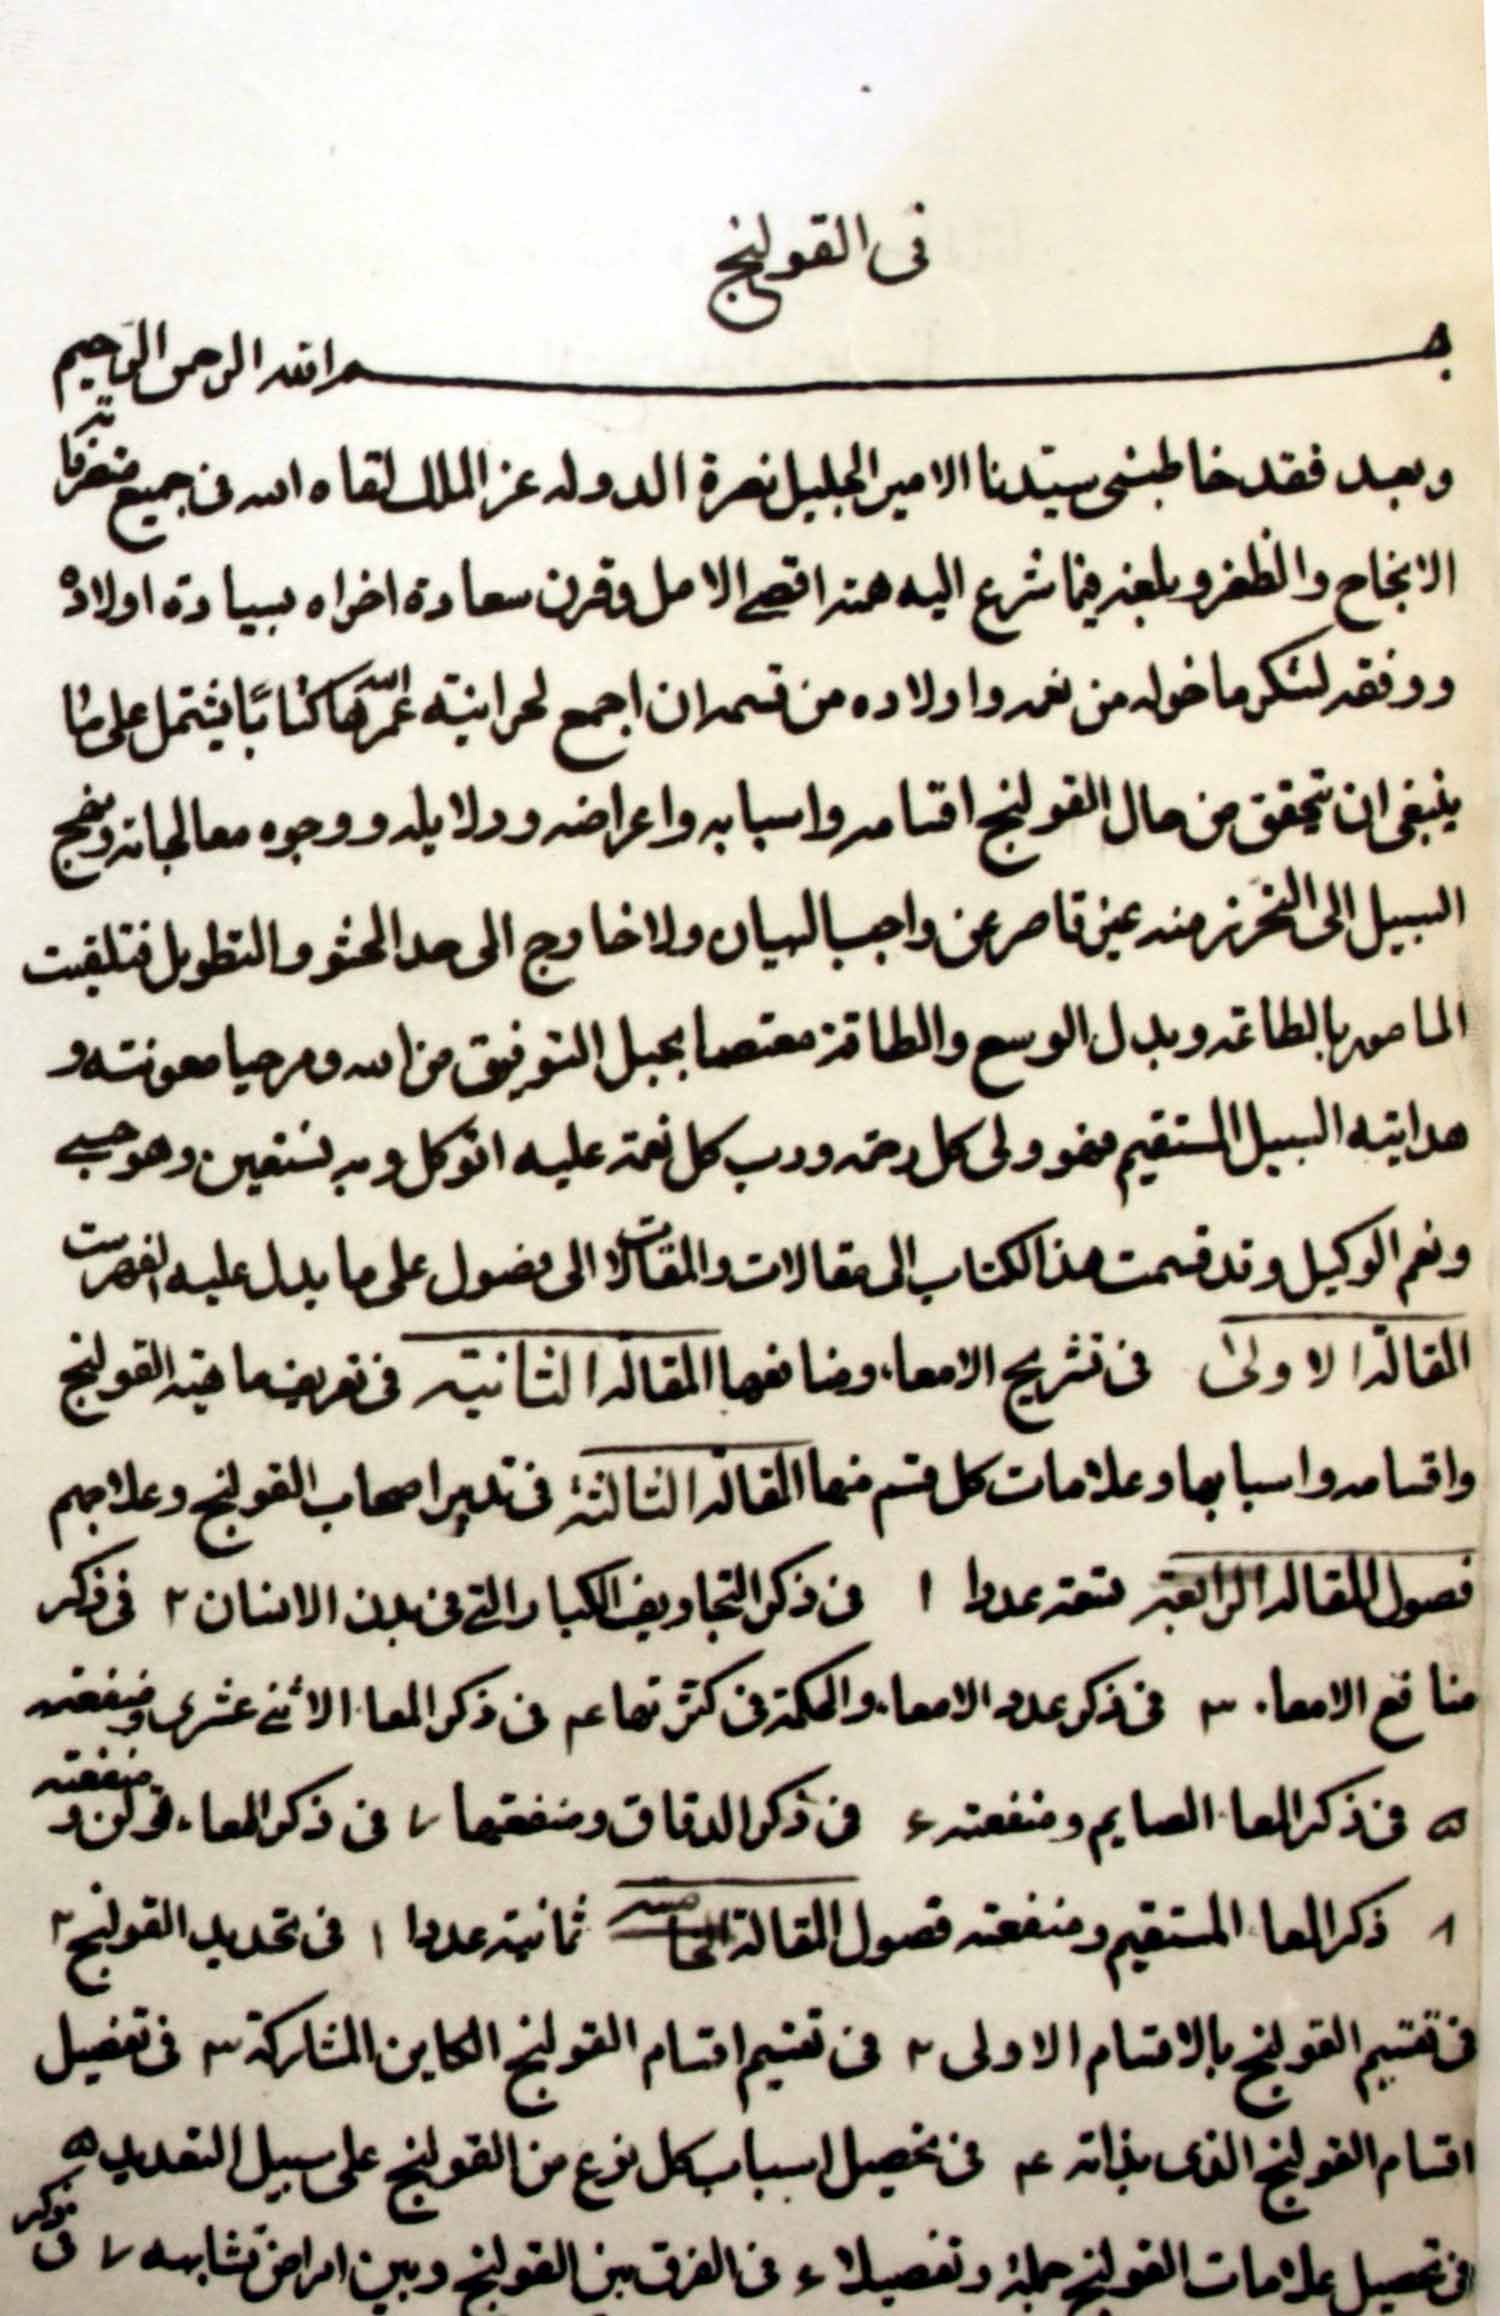 فى القولنج
بسم الله الرحمن الرحيم
وبعد فقد خاطبنى سيّدنا الامير الجليل نصرة الدوله عز الملك لقاه الله فى جميع متصرفاته
الانجاح والظفر وبلغه فيما شرع اليه همته اقصى الامل وقرن سعادة اخراه بسيادة اولاده
ووفقه لشكر ما خوله من نعمه واولاده من قسمه ان اجمع لخزانيته عمّرها الله كتابًا يشتمل على ما
ينبغى ان يتحقق من حال القولنج اقسامه واسبابه واعراضه ودلايله ووجوه معالجاته ونهج
السبيل الى التحرز منه غير قاصر عن واجب البيان ولا خارج الى حد الحشو والتطويل فتلقيت
المامور بالطاعة وبذل الوسع والطاقة معتصما بحبل التوفيق من الله ومرجيا معونته و
هدايته السبيل المستقيم فهو ولى كل رحمة ورب كل نعمة عليه اتوكل وبه نستعين وهو حسبى
ونعم الوكيل وقد قسمت هذا الكتاب الى مقالات والمقالات الى فصول على ما يدل عليه الفهرست
المقالة الاولى فى تشريح الامعاء ومنافعها المقاله الثانيه فى تعريف ماهية القولنج
واقسامه واسبابها وعلامات كل قسم منها المقاله الثالثة فى تدبير اصحاب القولنج وعلاجهم
فصول المقاله الرابعة تسعة عددا ١ فى ذكر التجاويف الكبار التى فى بدن الانسان ٢ فى ذكر
منافع الامعاء ٣ فى ذكر عدد الامعاء والحكمة فى كثرتها ٤ فى ذكر المعا الاثنى عشرى ومنفعته
٥ فى ذكر المعا الصايم ومنفعته ٦ فى ذكر الدقاق ومنفعتها ٧ فى ذكر المعاء قولن ومنفعته
٨ ذكر المعا المستقيم ومنفعته فصول المقالة الخامسه ثمانية عددا ١ فى تحديد القولنج ٢
فى تقسيم القولنج بالاقسام الاولى ٢ فى تقسيم اقسام القولنج الكاين المشاركة ٣ فى تفصيل
اقسام القولنج الذى بذاته ٤ فى تحصيل اسباب كل نوع من القولنج على سبيل التعديد ٥
فى تحصيل علامات القولنج جملة وتفصيلا ٦ فى الفرق بين القولنج وبين امراض تشابهه ٧ فى ذكر